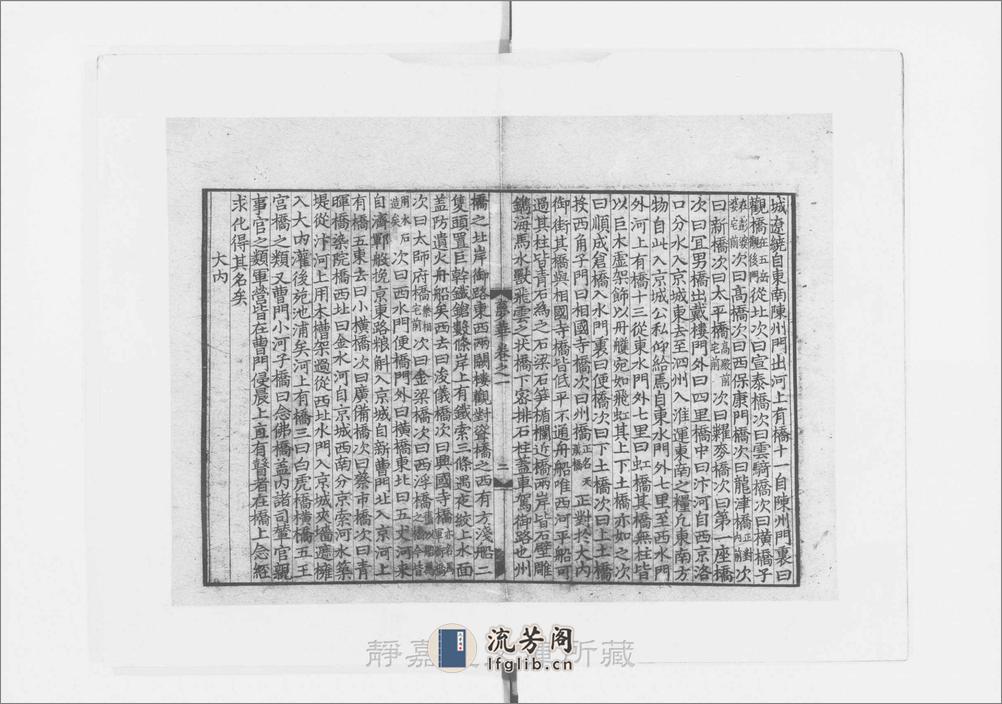 城遶繞自東南陳州門出河上有橋十一自陳州門裏曰
觀橋在五岳觀後門從北次曰宣泰橋次曰雲騎橋次曰橫橋子
在彭婆婆宅前次曰高橋次曰西保康門橋次曰龍津橋正對內前次
曰新橋次曰太平橋高殿前宅前次曰糶麥橋次曰第一座橋
次曰宜男橋出戴樓門外曰四里橋中曰汴河自西京洛
口分水入京城東去至泗州入淮運東南之糧凡東南方
物自此入京城公私仰給焉自東水門外七里至西水門
外河上有橋十三從東水門外七里曰虹橋其橋無柱皆
以巨木虛架飾以丹艧宛如飛虹其上下土橋亦如之次
曰順成倉橋入水門裏曰便橋次曰下土橋次曰上土橋
投西角子門曰相國寺橋次曰州橋正名天漢橋正對於大内
御街其橋與相國寺橋皆低平不通舟船唯西河平船可
過其柱皆青石為之石梁石笋楯欄近橋兩岸皆石壁雕
鐫海馬水獸飛雲之狀橋下密排石柱蓋車駕御路也州
夢華卷之一
二
橋之北岸御路東西兩闕樓觀對聳橋之西有方淺船二
隻頭置巨幹鐵鎗數條岸上有鐵索三條遇夜絞上水面
蓋防遺火舟船矣西去曰浚儀橋次曰興國寺橋亦名馬軍衙橋
次曰太師府橋蔡相宅前次曰金梁橋次曰西浮橋舊以船為之橋今皆
用木石造矣次曰西水門便橋門外曰橫橋東北曰五丈河來
自濟鄆般挽京東路粮斛入京城自新曹門北入京河上
有橋五東去曰小橫橋次曰廣備橋次曰蔡市橋次曰青
暉橋染院橋西北曰金水河自京城西南分京索河水築
堤從汴河上用木槽架過從西北水門入京城夾墻遮擁
入大内灌後苑池浦矣河上有橋三曰白虎橋橫橋五王
宮橋之類又曹門小河子橋曰念佛橋蓋内諸司輦官親
事官之類軍營皆在曹門侵晨上直有瞽者在橋上念經
求化得其名矣
大内
流芳阁
lfglib.cn
靜嘉 所藏